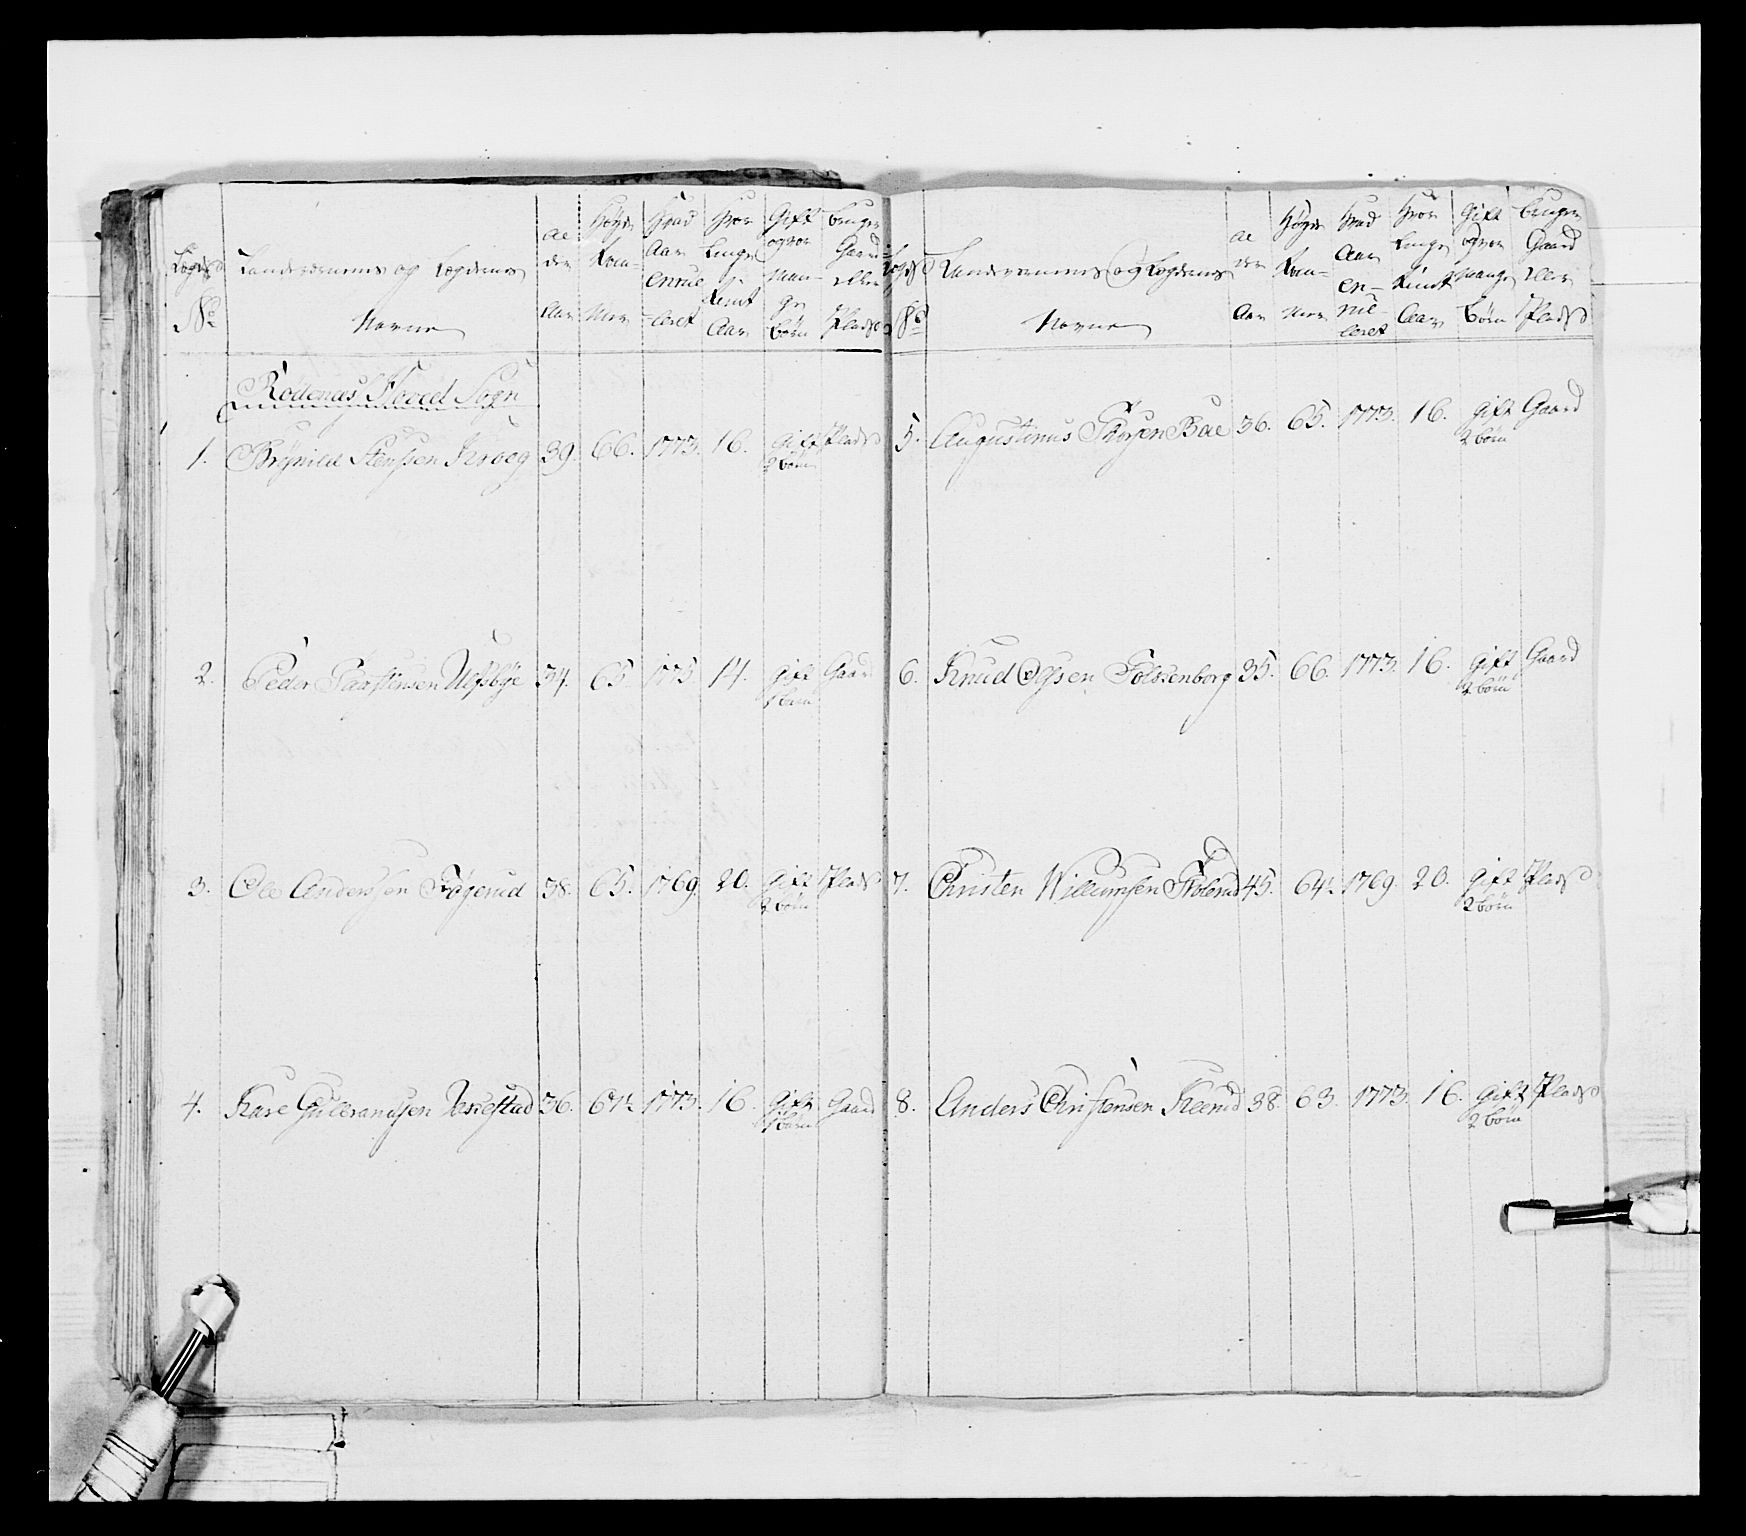 Lægds No
Landeværnens og Lægdernes Navne
Ael der Aar
Høyde Kom- Mer
Hvad Aar Enrul- leret
Hvor Lenge tient Aar
Gift og vor Man- ge Børn
bruger Gaard eller Plads
Rødenæs Hoved Sogn
1. Brynild Stenssen Kroog 39. 66. 1773. 16. Gift 2 børn Plads
2. Peder Taarstensen Ulfsbye 34. 65. 1775 14. Gift 1 barn Gaard
3. Ole Anderssen Tøgerud 38. 65. 1769. 20. Gift 2 børn Plads
4. Kare Gulbrandsen 36. 64. 1773. 16. Gift 1 barn Gaard
Lægds No
Landeværnens og Lægdernes Navne
Ael der Aar
Høyde Kom- Mer
Hvad Aar En- rul- leret
Hvor Lenge tient Aar
Gift og vor mange Børn
bruger Gaard eller Plads
5. Augustinus Boe 36. 65. 1773. 16. Gift 2 børn Gaard
6. Knud Olsen 35. 66. 1773. 16. Gift 2 børn Gaard
7. Christen Willumsen 45. 64. 1769. 20. Gift 2 børn Plads
8. Anders Christensen 38. 63. 1773. 16. Gift 2 børn Plads